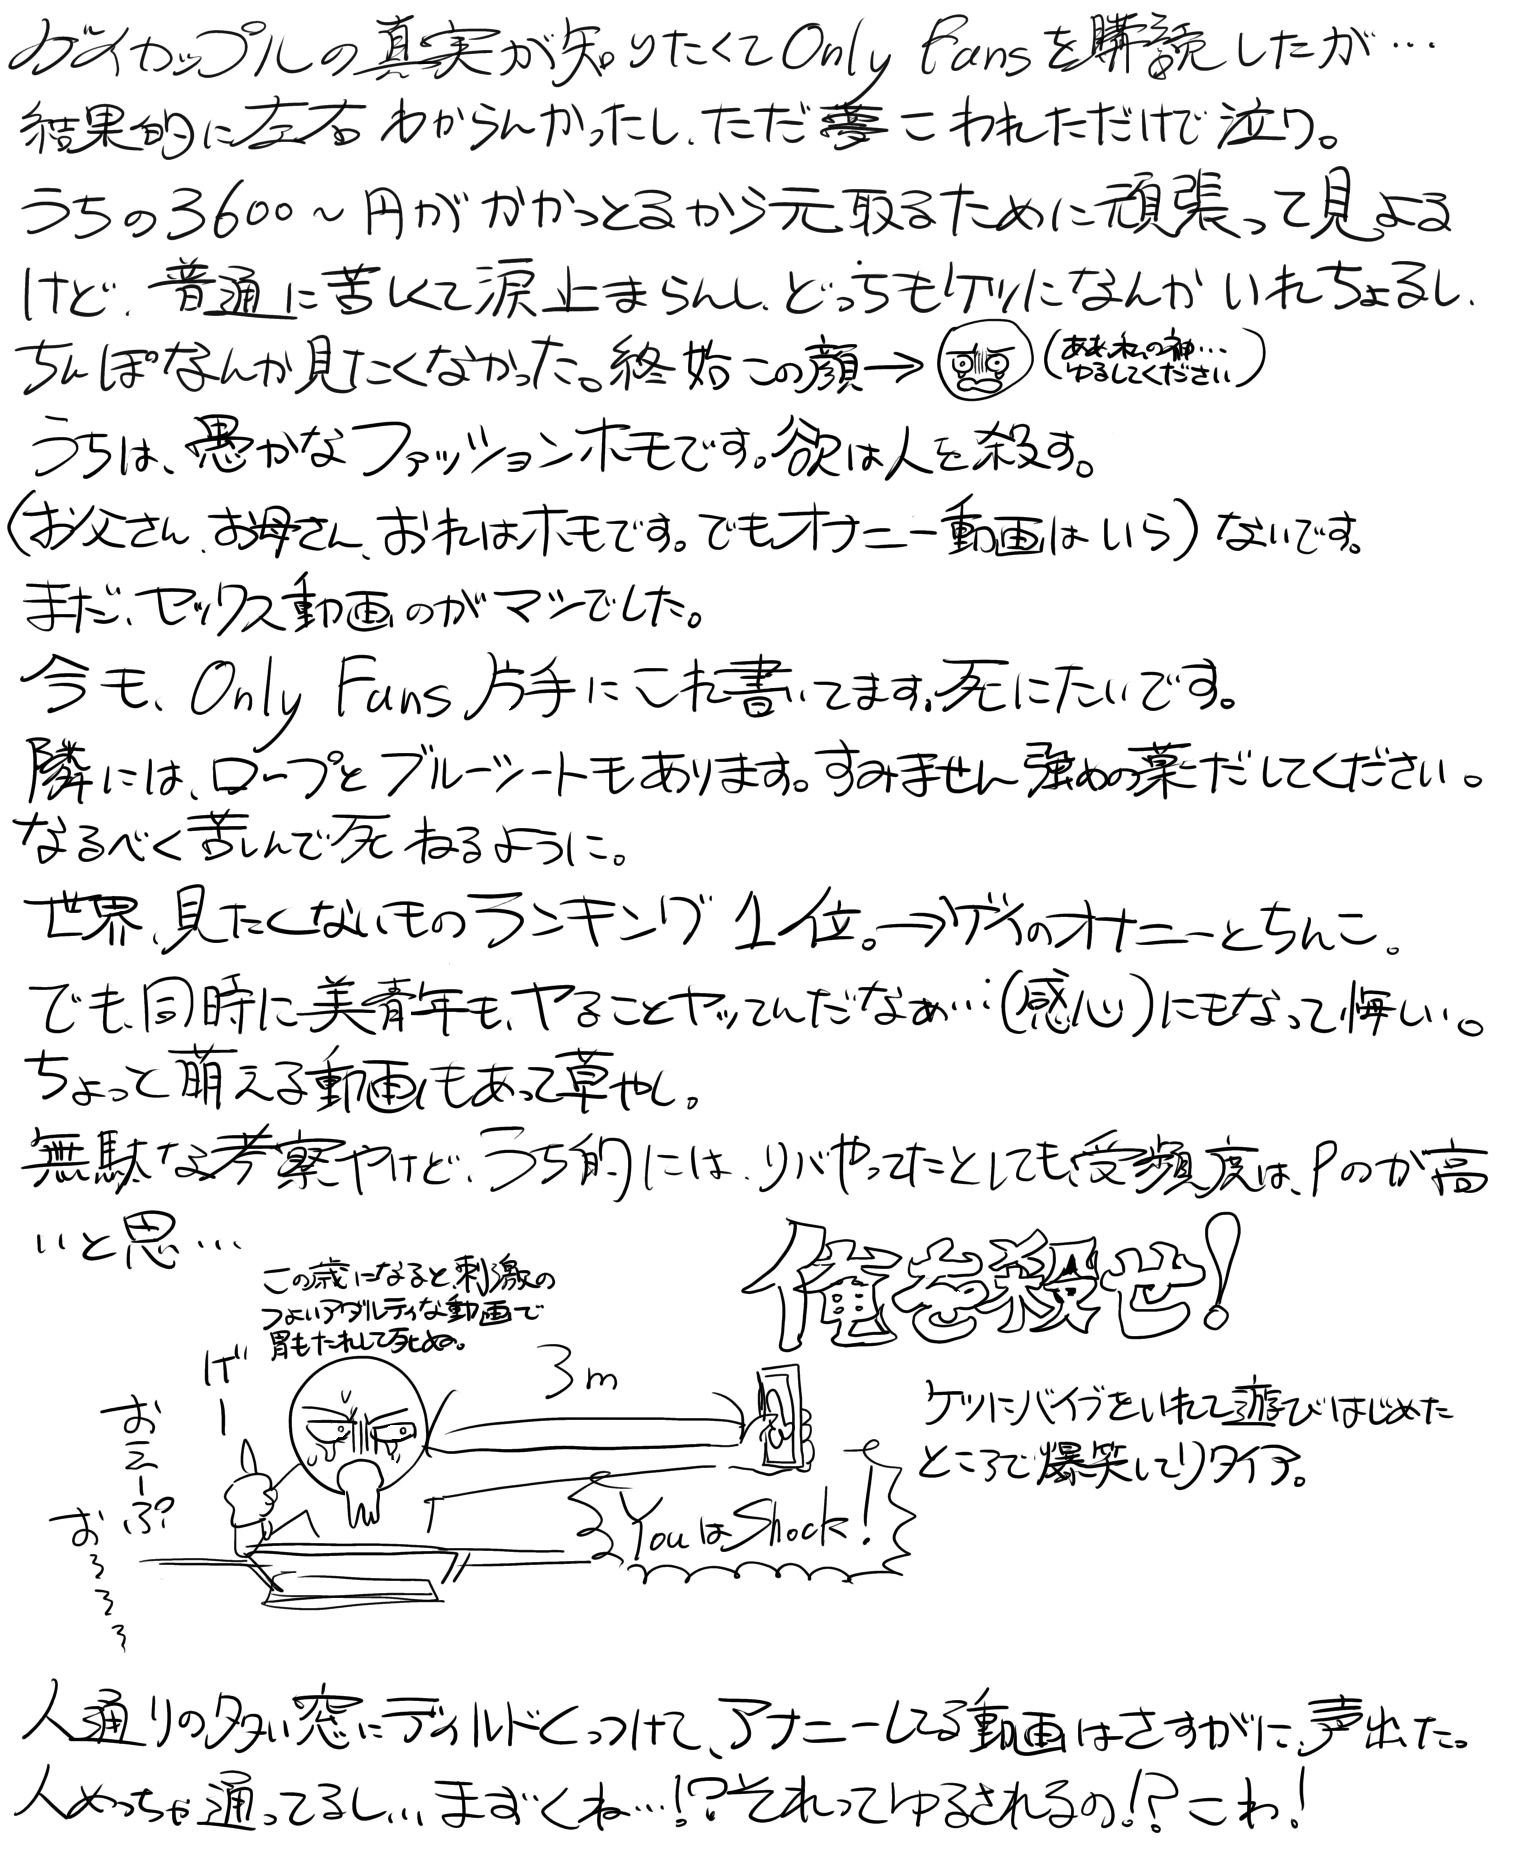 ゲイカップルの真実が知りたくてOnly Fansを購読したが…
結果的に左右わからんかったし、ただ夢こわれただけで泣り。
うちの3600～円がかかっとるから元取るために頑張って見よる
けど、普通に苦しくて涙止まらんし、どっちもケツになんかいれちょるし、
ちんぽなんか見たくなかった。終始この顔→(ああ、私の神…
ゆるしてください)
うちは、愚かなファッションホモです。欲は人を殺す。
(お父さん、お母さん、おれはホモです。でもオナニー動画はいら)ないです。
まだ、セックス動画のがマシでした。
今も、Only Fans片手にこれ書いてます。死にたいです。
隣には、ロープとブルーシートもあります。すみません強めの薬だしてください。
なるべく苦しんで死ねるように。
世界、見たくないものランキング1位。→ゲイのオナニーとちんこ。
でも、同時に美青年も、ヤることヤッてんだなぁ…(感心)にもなって悔しい。
ちょっと萌える動画もあって草やし。
無駄な考察やけど、うち的には、リバやってたとしても、受頻度は、Pのが高
いと思…
俺を殺せ!
この歳になると、刺激の
つよいアダルティな動画で
胃もたれして死ぬ。
げー
おえーぷ?
おろろろ
3m
You は Shock!
ケツにバイブをいれて遊びはじめた
ところで爆笑してリタイア。
人通りの多い窓にディルドくっつけて、アナニーしてる動画はさすがに、声出た。
人めっちゃ通ってるし… まずくね…!?それってゆるされるの!?こわ!